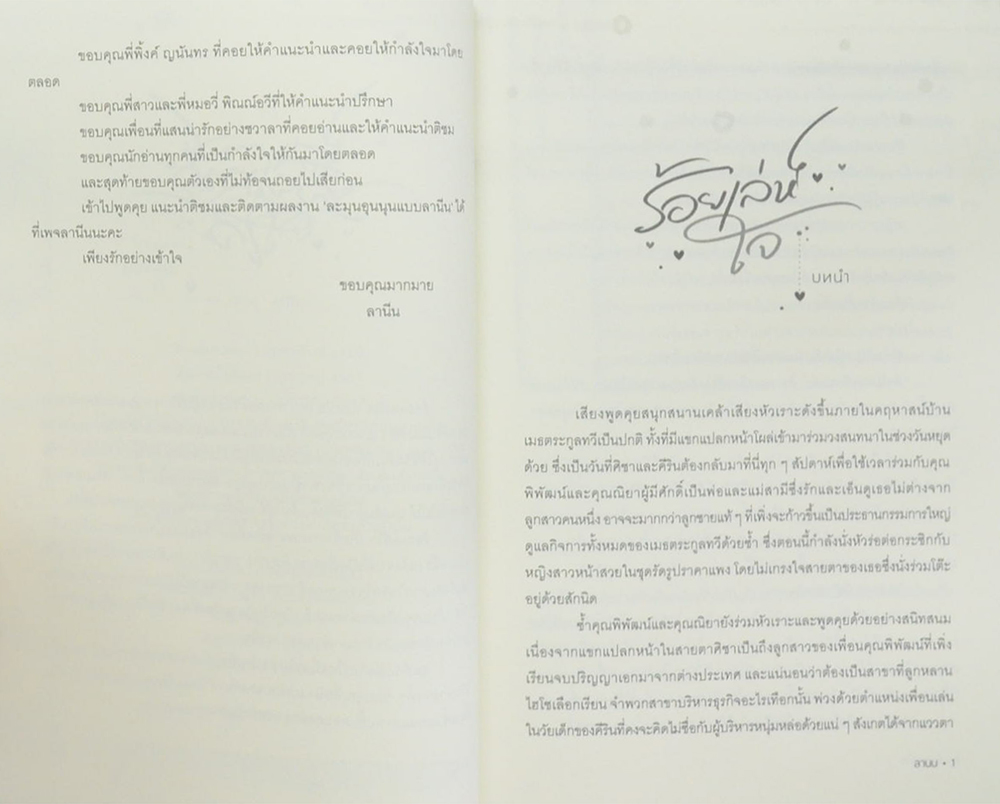 ขอบคุณพี่พิ้งค์ ญนันทร ที่คอยให้คำแนะนำและคอยให้กำลังใจมาโดย
ตลอด
ขอบคุณพี่สาวและพี่หมอวี่ พิณณ์อวีที่ให้คำแนะนำปรึกษา
ขอบคุณเพื่อนที่แสนน่ารักอย่างชวาลาที่คอยอ่านและให้คำแนะนำติชม
ขอบคุณนักอ่านทุกคนที่เป็นกำลังใจให้กันมาโดยตลอด
และสุดท้ายขอบคุณตัวเองที่ไม่ท้อจนถอยไปเสียก่อน
เข้าไปพูดคุย แนะนำติชมและติดตามผลงาน 'ละมุนอุนนุนแบบลานีน' ได้
ที่เพจลานีนนะคะ
เพียงรักอย่างเข้าใจ
ขอบคุณมากมาย
ลานีน
ร้อยเล่ห์
ใจ
บทนำ
เสียงพูดคุยสนุกสนานเคล้าเสียงหัวเราะดังขึ้นภายในคฤหาสน์บ้าน
เมธตระกูลทวีเป็นปกติ ทั้งที่มีแขกแปลกหน้าโผล่เข้ามาร่วมวงสนทนาในช่วงวันหยุด
ด้วย ซึ่งเป็นวันที่ศิชาและคีรินต้องกลับมาที่นี่ทุก ๆ สัปดาห์เพื่อใช้เวลาร่วมกับคุณ
พิพัฒน์และคุณณิยาผู้มีศักดิ์เป็นพ่อและแม่สามีซึ่งรักและเอ็นดูเธอไม่ต่างจาก
ลูกสาวคนหนึ่ง อาจจะมากกว่าลูกชายแท้ ๆ ที่เพิ่งจะก้าวขึ้นเป็นประธานกรรมการใหญ่
ดูแลกิจการทั้งหมดของเมธตระกูลทวีด้วยซ้ำ ซึ่งตอนนี้กำลังนั่งหัวร่อต่อกระซิกกับ
หญิงสาวหน้าสวยในชุดรัดรูปราคาแพง โดยไม่เกรงใจสายตาของเธอซึ่งนั่งร่วมโต๊ะ
อยู่ด้วยสักนิด
ซ้ำคุณพิพัฒน์และคุณณิยายังร่วมหัวเราะและพูดคุยด้วยอย่างสนิทสนม
เนื่องจากแขกแปลกหน้าในสายตาศิชาเป็นถึงลูกสาวของเพื่อนคุณพิพัฒน์ที่เพิ่ง
เรียนจบปริญญาเอกมาจากต่างประเทศ และแน่นอนว่าต้องเป็นสาขาที่ลูกหลาน
ไฮโซเลือกเรียน จำพวกสาขาบริหารธุรกิจอะไรเทือกนั้น พ่วงด้วยตำแหน่งเพื่อนเล่น
ในวัยเด็กของคีรินที่คงจะคิดไม่ซื่อกับผู้บริหารหนุ่มหล่อด้วยแน่ ๆ สังเกตได้จากแววตา
ลาณีน • 1